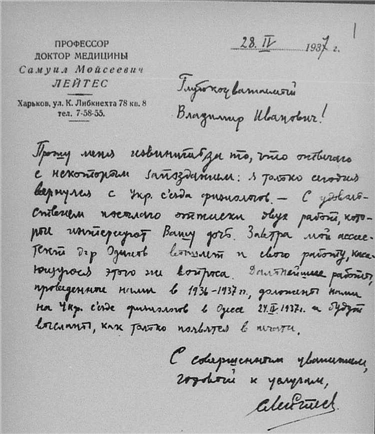 1
ПРОФЕССОР
ДОКТОР МЕДИЦИНЫ
Самуил Мойсеевич
ЛЕЙТЕС
Харьков, ул. К. Либкнехта 78 кв. 8
тел. 7-58-55.
28. IV 1937 г.
Глубокоуважаемый
Владимир Иванович!
Прошу меня извинить за то, что отвечаю
с некоторым запозданием: я только сегодня
вернулся с Укр. с'езда физиологов. — С удоволь-
ствием посылаю оттиски двух работ, кото-
рые интересуют Вашу дочь. Завтра мой ассис-
тент д-р вышлет и свою работу, каса-
ющуюся этого же вопроса. Дальнейшие работы,
проведенные нами в 1936-1937 г., доложены нами
на Укр. с'езде физиологов в Одессе 1937 г. и будут
высланы, как только появятся в печати.
С совершенным уважением,
готовый к услугам,
СЛейтес